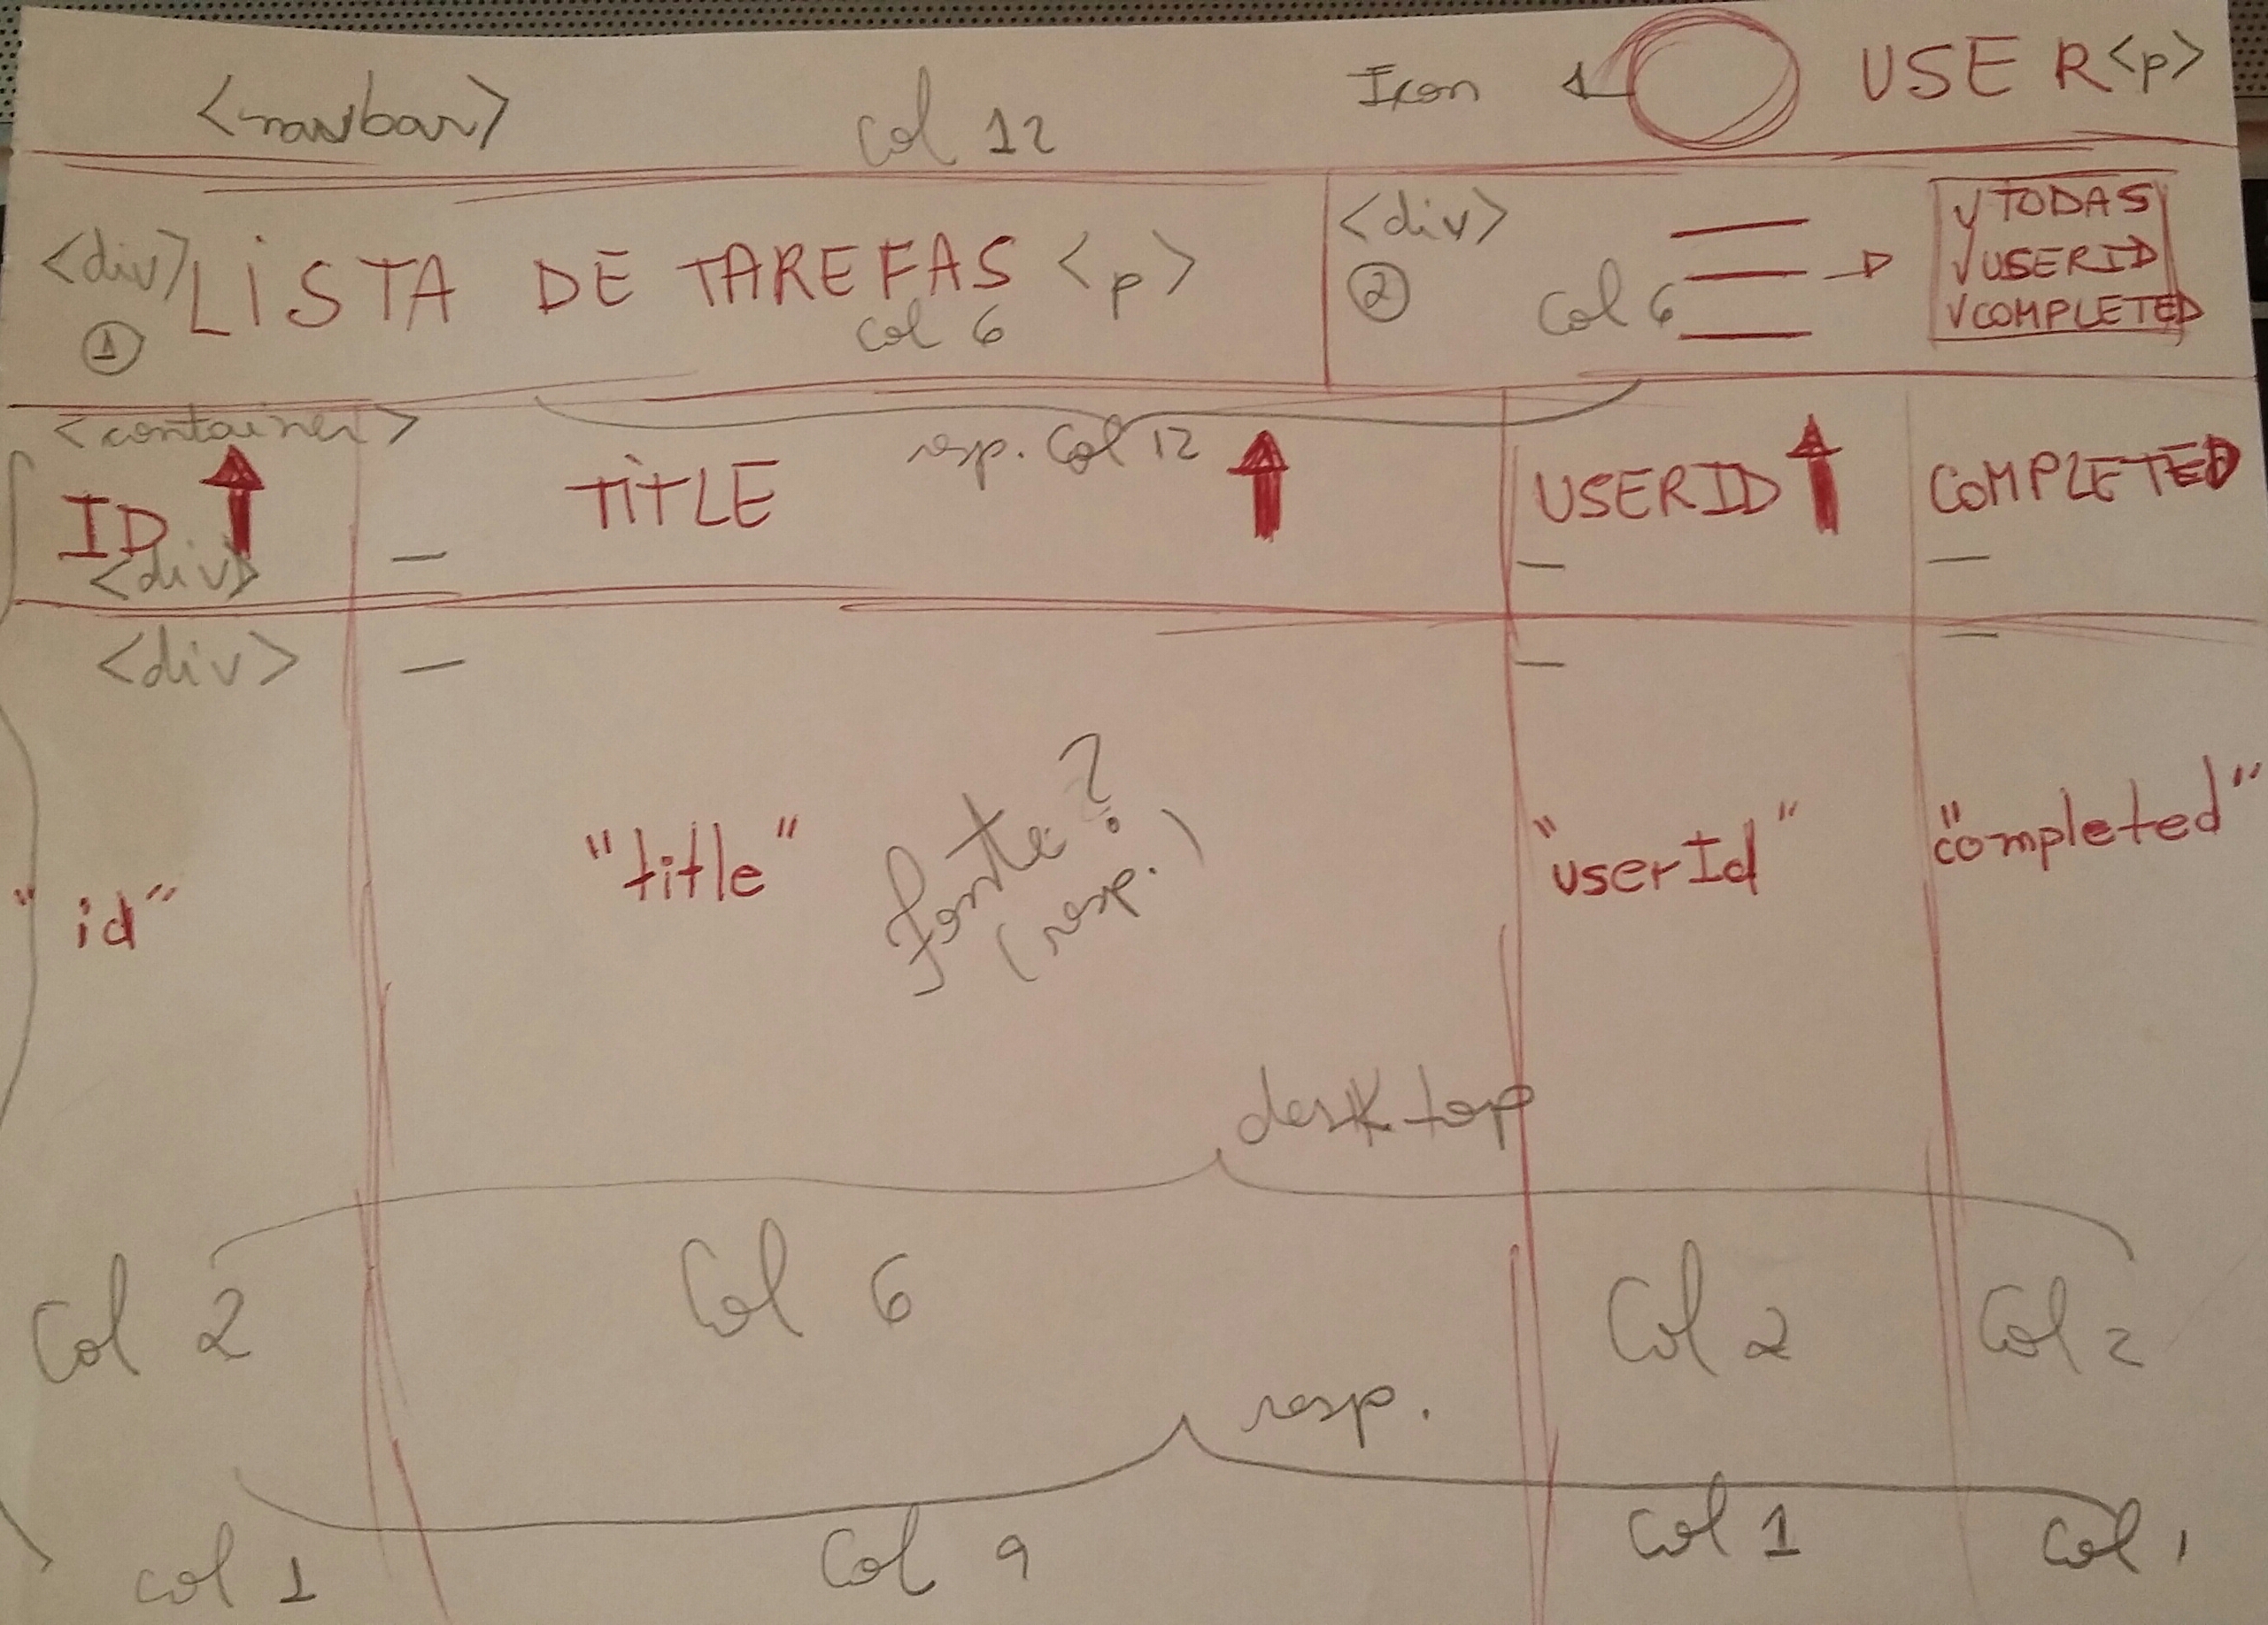 <navbar> Col 12 Icon USER <p>
<div> LISTA DE TAREFAS <p>
1 Col 6
<div>
2 Col 6
√ TODAS
√ USERID
√ COMPLETED
<container>
resp. Col 12
ID TITLE USERID COMPLETED
<div>
<div>
"id" "title" "userId" "completed"
fonte?
(resp.)
desktop
Col 2 Col 6 Col 2 Col 2
resp.
Col 1 Col 9 Col 1 Col 1